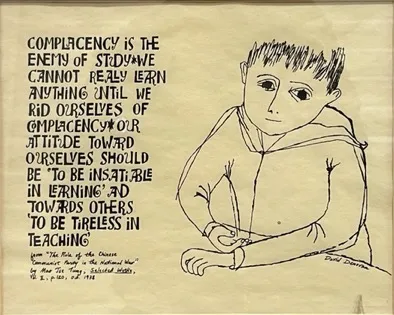 COMPLACENCY IS THE
ENEMY OF STUDY*WE
CANNOT REALLY LEARN
ANYTHING UNTIL WE
RID OURSELVES OF
COMPLACENCY*OUR
ATTITUDE TOWARD
OURSELVES SHOULD
BE 'TO BE INSATIABLE
IN LEARNING' AND
TOWARDS OTHERS
'TO BE TIRELESS IN
TEACHING'
from "The Role of the Chinese
Communist Party in the National War"
by Mao Tse Tung, Selected Works,
Vol. II, p.210, Oct. 1938
David